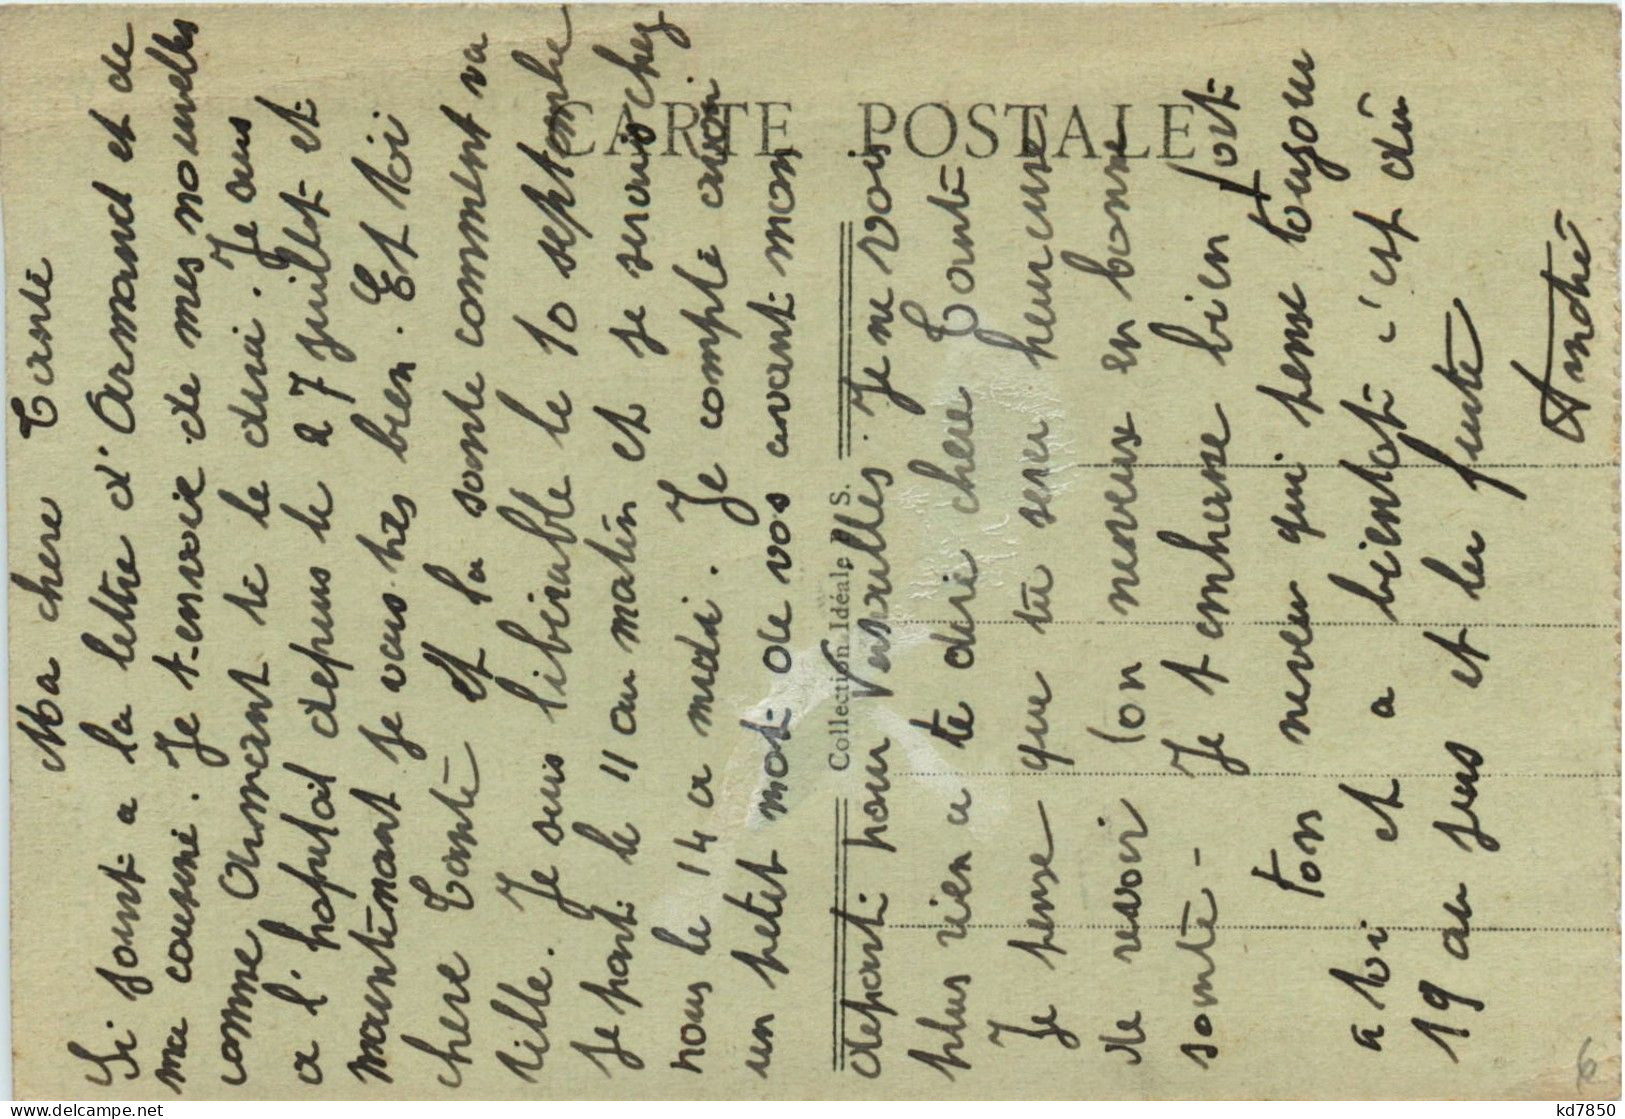 Ma chere Tante
Si joint a la lettre d'Armand et de
ma cousine. Je t-envoie de mes nouvelles
comme Armant te le dirai. Je suis
a l'hopital depuis le 27 juillet et
maintenant je vous tres bien. Et toi
chere Tante et la sante comment va
t'elle. Je suis libérable le 10 septembre
Je part le 11 au matin et je serais chez
nous le 14 a midi. Je compte avoir
un petit mot de vos avant mon
depart pour Versailles. Je ne vois
plus rien a te dire chere Tante
Je pense que tu sera heureuse
de revoir ton neveux en bonne
sante - Je t'embrasse bien fort
Ton neveu qui pense toujour
a toi et a bientot c'est dù
19 au jus et la fuite
André
CARTE POSTALE
Collection Idéale P. S.
6
kd7850